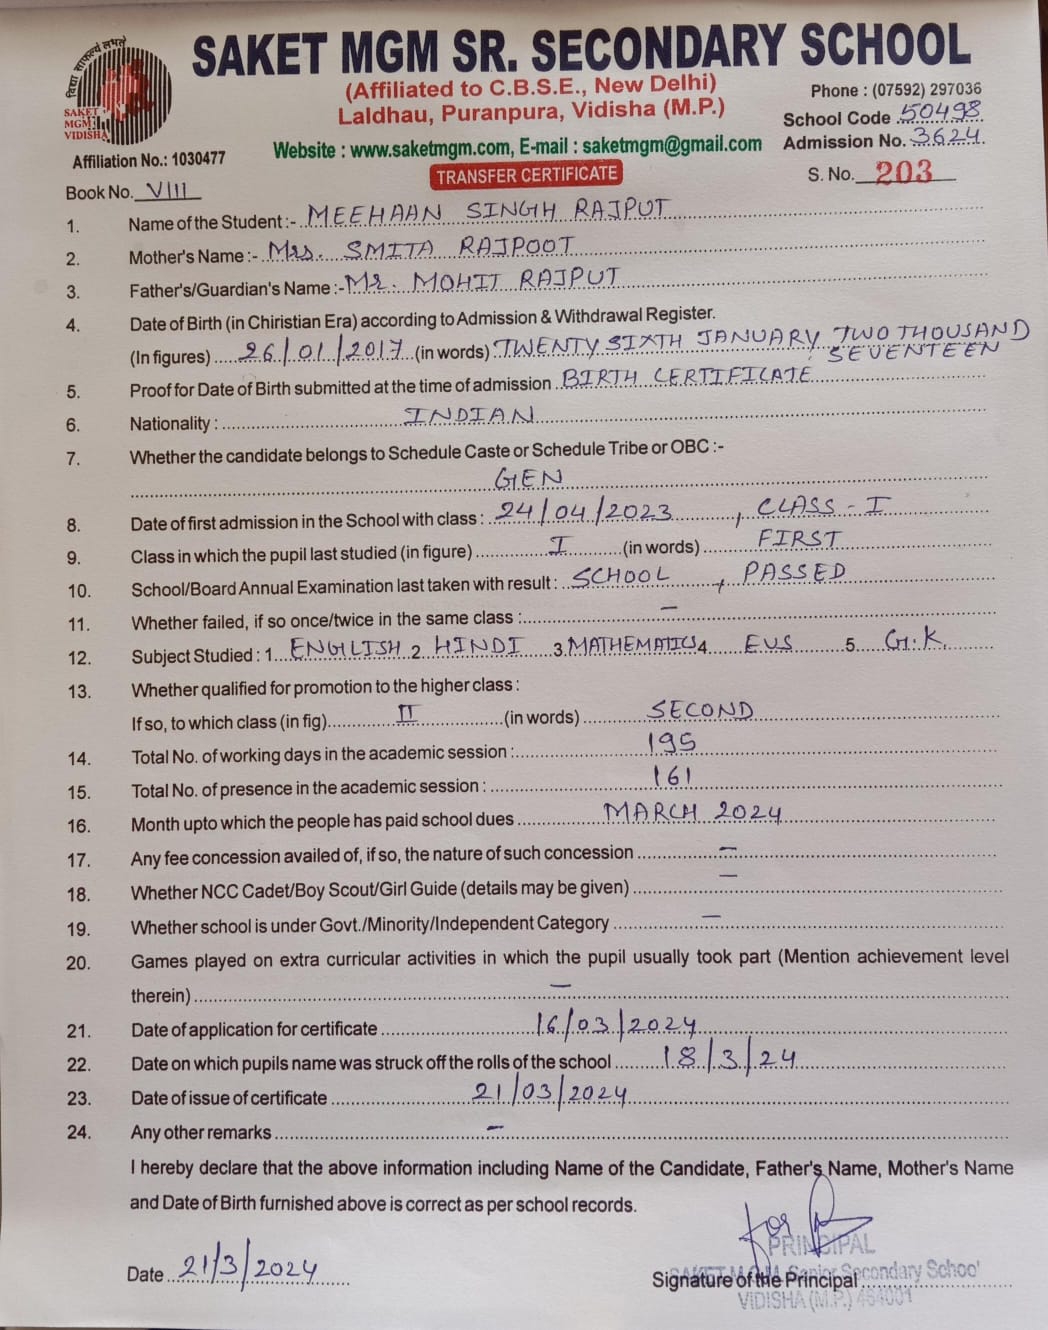 विद्या साफल्यं लभते
SAKET
MGM
VIDISHA
SAKET MGM SR. SECONDARY SCHOOL
(Affiliated to C.B.S.E., New Delhi)
Laldhau, Puranpura, Vidisha (M.P.)
Phone : (07592) 297036
School Code 50498
Affiliation No.: 1030477
Website : www.saketmgm.com, E-mail : saketmgm@gmail.com
Admission No. 3624
Book No. VIII
TRANSFER CERTIFICATE
S. No. 203
1. Name of the Student :- MEEHAAN SINGH RAJPUT
2. Mother's Name :- Mrs. SMITA RAJPOOT
3. Father's/Guardian's Name :- Mr. MOHIT RAJPUT
4. Date of Birth (in Chiristian Era) according to Admission & Withdrawal Register.
(In figures) 26/01/2017 (in words) TWENTY SIXTH JANUARY, TWO THOUSAND
SEVENTEEN
5. Proof for Date of Birth submitted at the time of admission BIRTH CERTIFICATE
6. Nationality : INDIAN
7. Whether the candidate belongs to Schedule Caste or Schedule Tribe or OBC :-
GEN
8. Date of first admission in the School with class : 24/04/2023, CLASS - I
9. Class in which the pupil last studied (in figure) I (in words) FIRST
10. School/Board Annual Examination last taken with result : SCHOOL, PASSED
11. Whether failed, if so once/twice in the same class : —
12. Subject Studied : 1. ENGLISH 2. HINDI 3. MATHEMATICS 4. EVS 5. G.K.
13. Whether qualified for promotion to the higher class :
If so, to which class (in fig) II (in words) SECOND
14. Total No. of working days in the academic session : 195
15. Total No. of presence in the academic session : 161
16. Month upto which the people has paid school dues MARCH 2024
17. Any fee concession availed of, if so, the nature of such concession —
18. Whether NCC Cadet/Boy Scout/Girl Guide (details may be given) —
19. Whether school is under Govt./Minority/Independent Category —
20. Games played on extra curricular activities in which the pupil usually took part (Mention achievement level
therein) —
21. Date of application for certificate 16/03/2024
22. Date on which pupils name was struck off the rolls of the school 18/3/24
23. Date of issue of certificate 21/03/2024
24. Any other remarks —
I hereby declare that the above information including Name of the Candidate, Father's Name, Mother's Name
and Date of Birth furnished above is correct as per school records.
for
PRINCIPAL
Date 21/3/2024
Signature of the Principal
Senior Secondary School
VIDISHA (M.P.) 464001